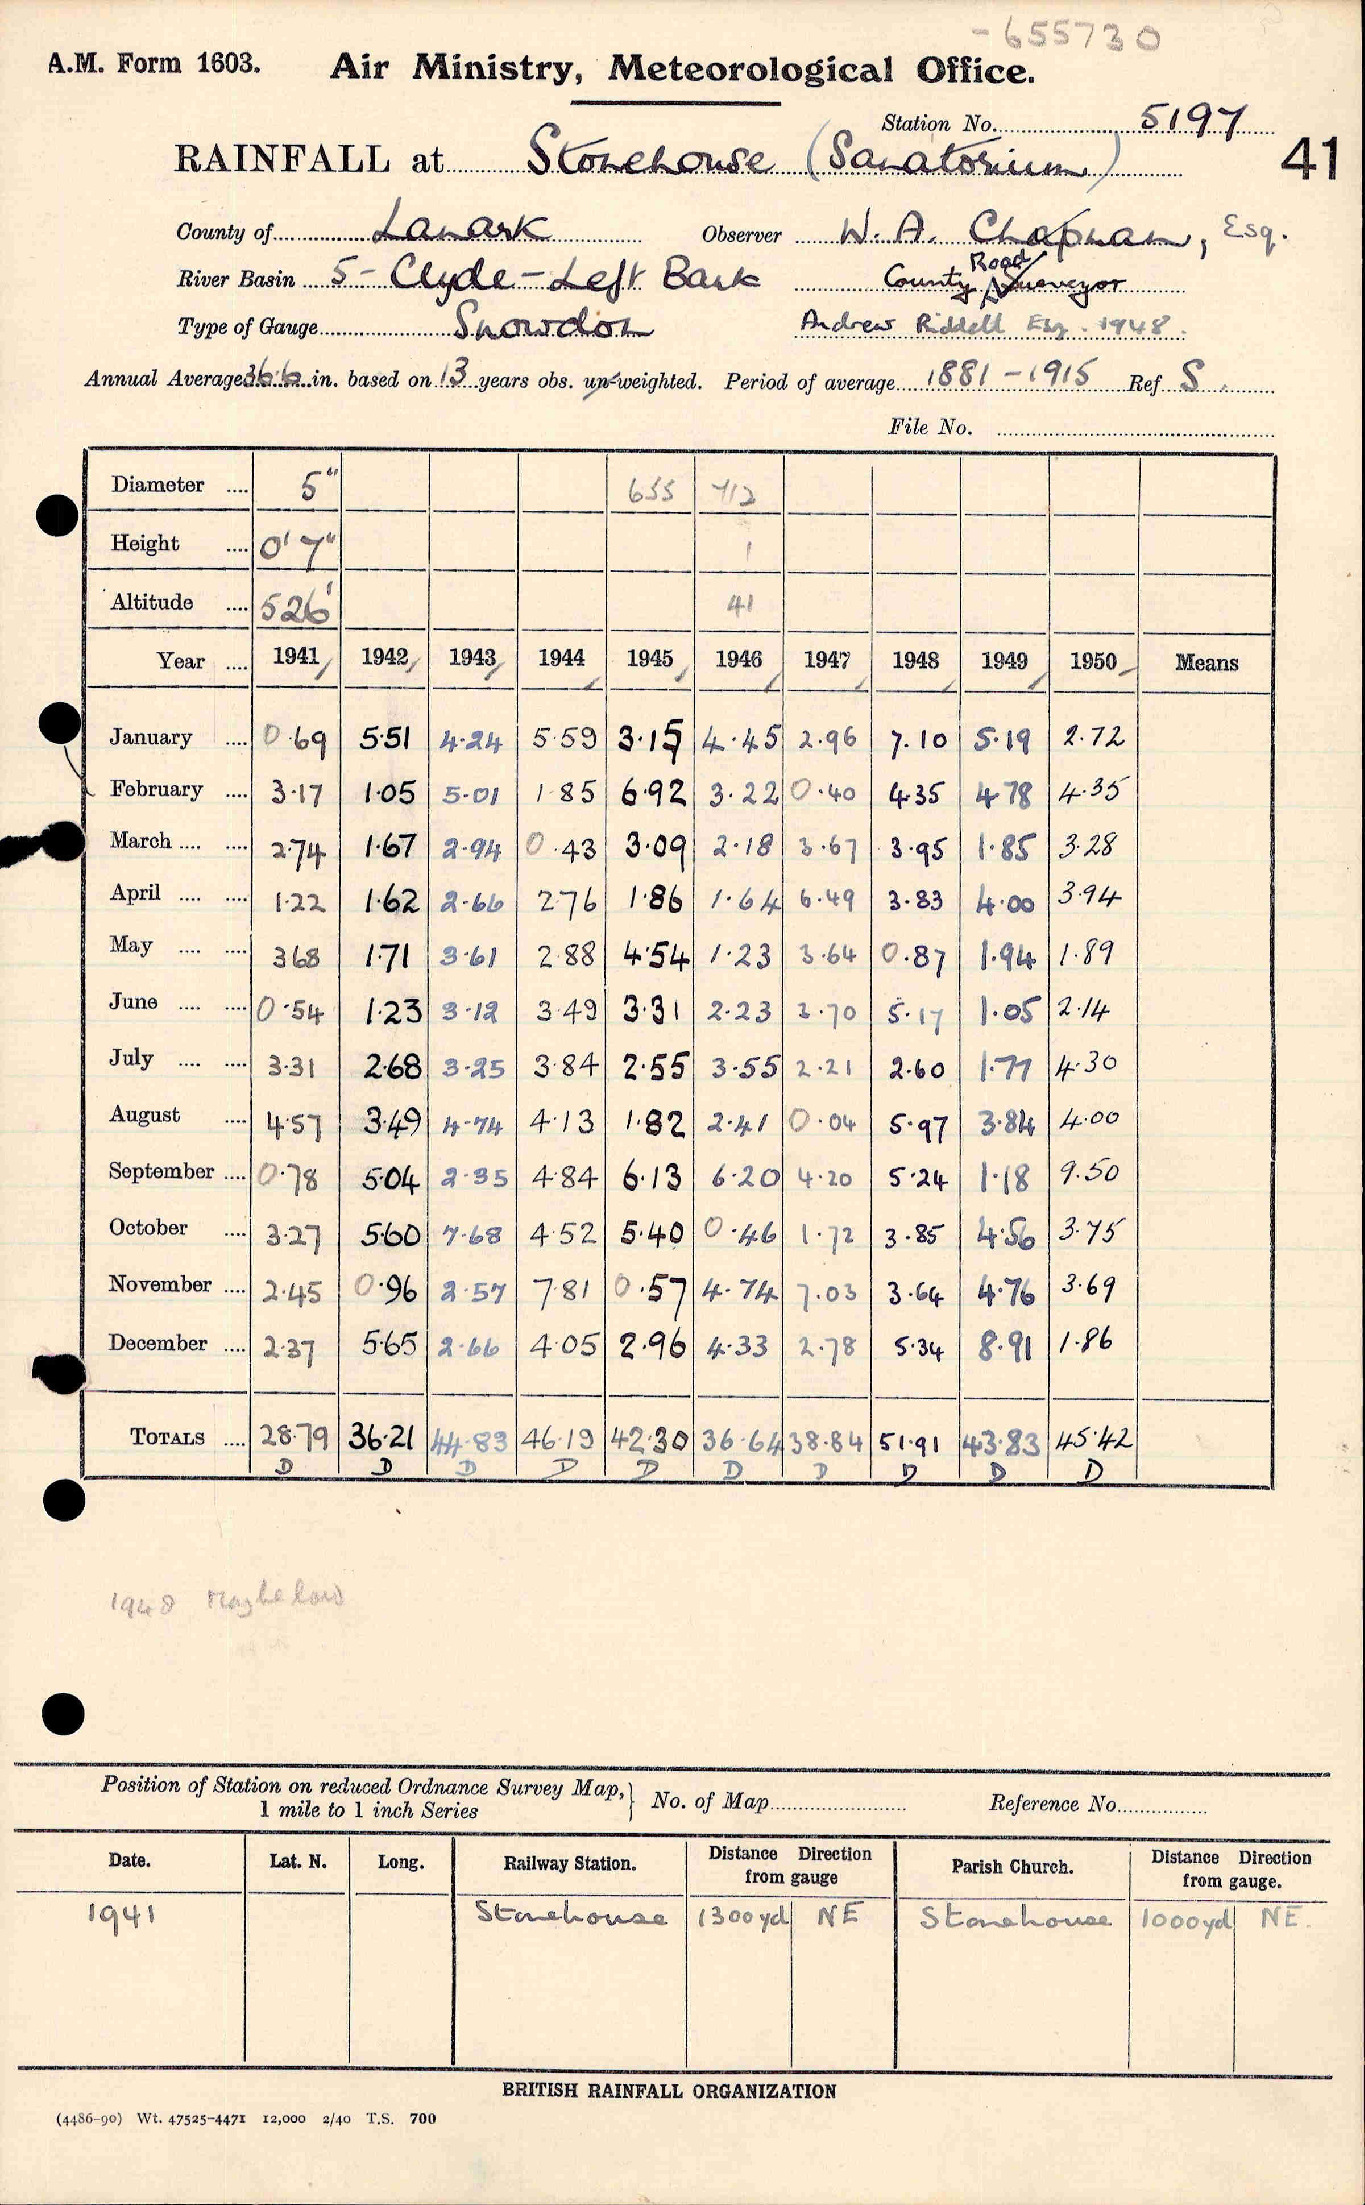 -655730
A.M. Form 1603. Air Ministry, Meteorological Office.
Station No. 5197
RAINFALL at Stonehouse (Sanatorium) 41
County of Lanark Observer W. A. Chapman, Esq.
River Basin 5 - Clyde - Left Bank County Road Surveyor
Type of Gauge Snowdon Andrew Riddell Esq. 1948.
Annual Average 36.6 in. based on 13 years obs. un-weighted. Period of average 1881-1915 Ref S.
File No.
Diameter .... 5" 655 712
Height .... 0' 7" 1
Altitude .... 526' 41
Year .... 1941 1942 1943 1944 1945 1946 1947 1948 1949 1950 Means
January .... 0.69 5.51 4.24 5.59 3.15 4.45 2.96 7.10 5.19 2.72
February .... 3.17 1.05 5.01 1.85 6.92 3.22 0.40 4.35 4.78 4.35
March .... .... 2.74 1.67 2.94 0.43 3.09 2.18 3.67 3.95 1.85 3.28
April .... .... 1.22 1.62 2.66 2.76 1.86 1.64 6.49 3.83 4.00 3.94
May .... .... 3.68 1.71 3.61 2.88 4.54 1.23 3.64 0.87 1.94 1.89
June .... .... 0.54 1.23 3.12 3.49 3.31 2.23 3.70 5.17 1.05 2.14
July .... .... 3.31 2.68 3.25 3.84 2.55 3.55 2.21 2.60 1.77 4.30
August .... 4.57 3.49 4.74 4.13 1.82 2.41 0.04 5.97 3.84 4.00
September .... 0.78 5.04 2.35 4.84 6.13 6.20 4.20 5.24 1.18 9.50
October .... 3.27 5.60 7.68 4.52 5.40 0.46 1.72 3.85 4.56 3.75
November .... 2.45 0.96 2.57 7.81 0.57 4.74 7.03 3.64 4.76 3.69
December .... 2.37 5.65 2.66 4.05 2.96 4.33 2.78 5.34 8.91 1.86
TOTALS .... 28.79 36.21 44.83 46.19 42.30 36.64 38.84 51.91 43.83 45.42
D D D D D D D D D D
1948 May be low
Position of Station on reduced Ordnance Survey Map, } No. of Map Reference No.
1 mile to 1 inch Series
Date. Lat. N. Long. Railway Station. Distance Direction from gauge Parish Church. Distance Direction from gauge.
1941 Stonehouse 1300yd NE Stonehouse 1000yd NE.
BRITISH RAINFALL ORGANIZATION
(4486-90) Wt. 47525-4471 12,000 2/40 T.S. 700